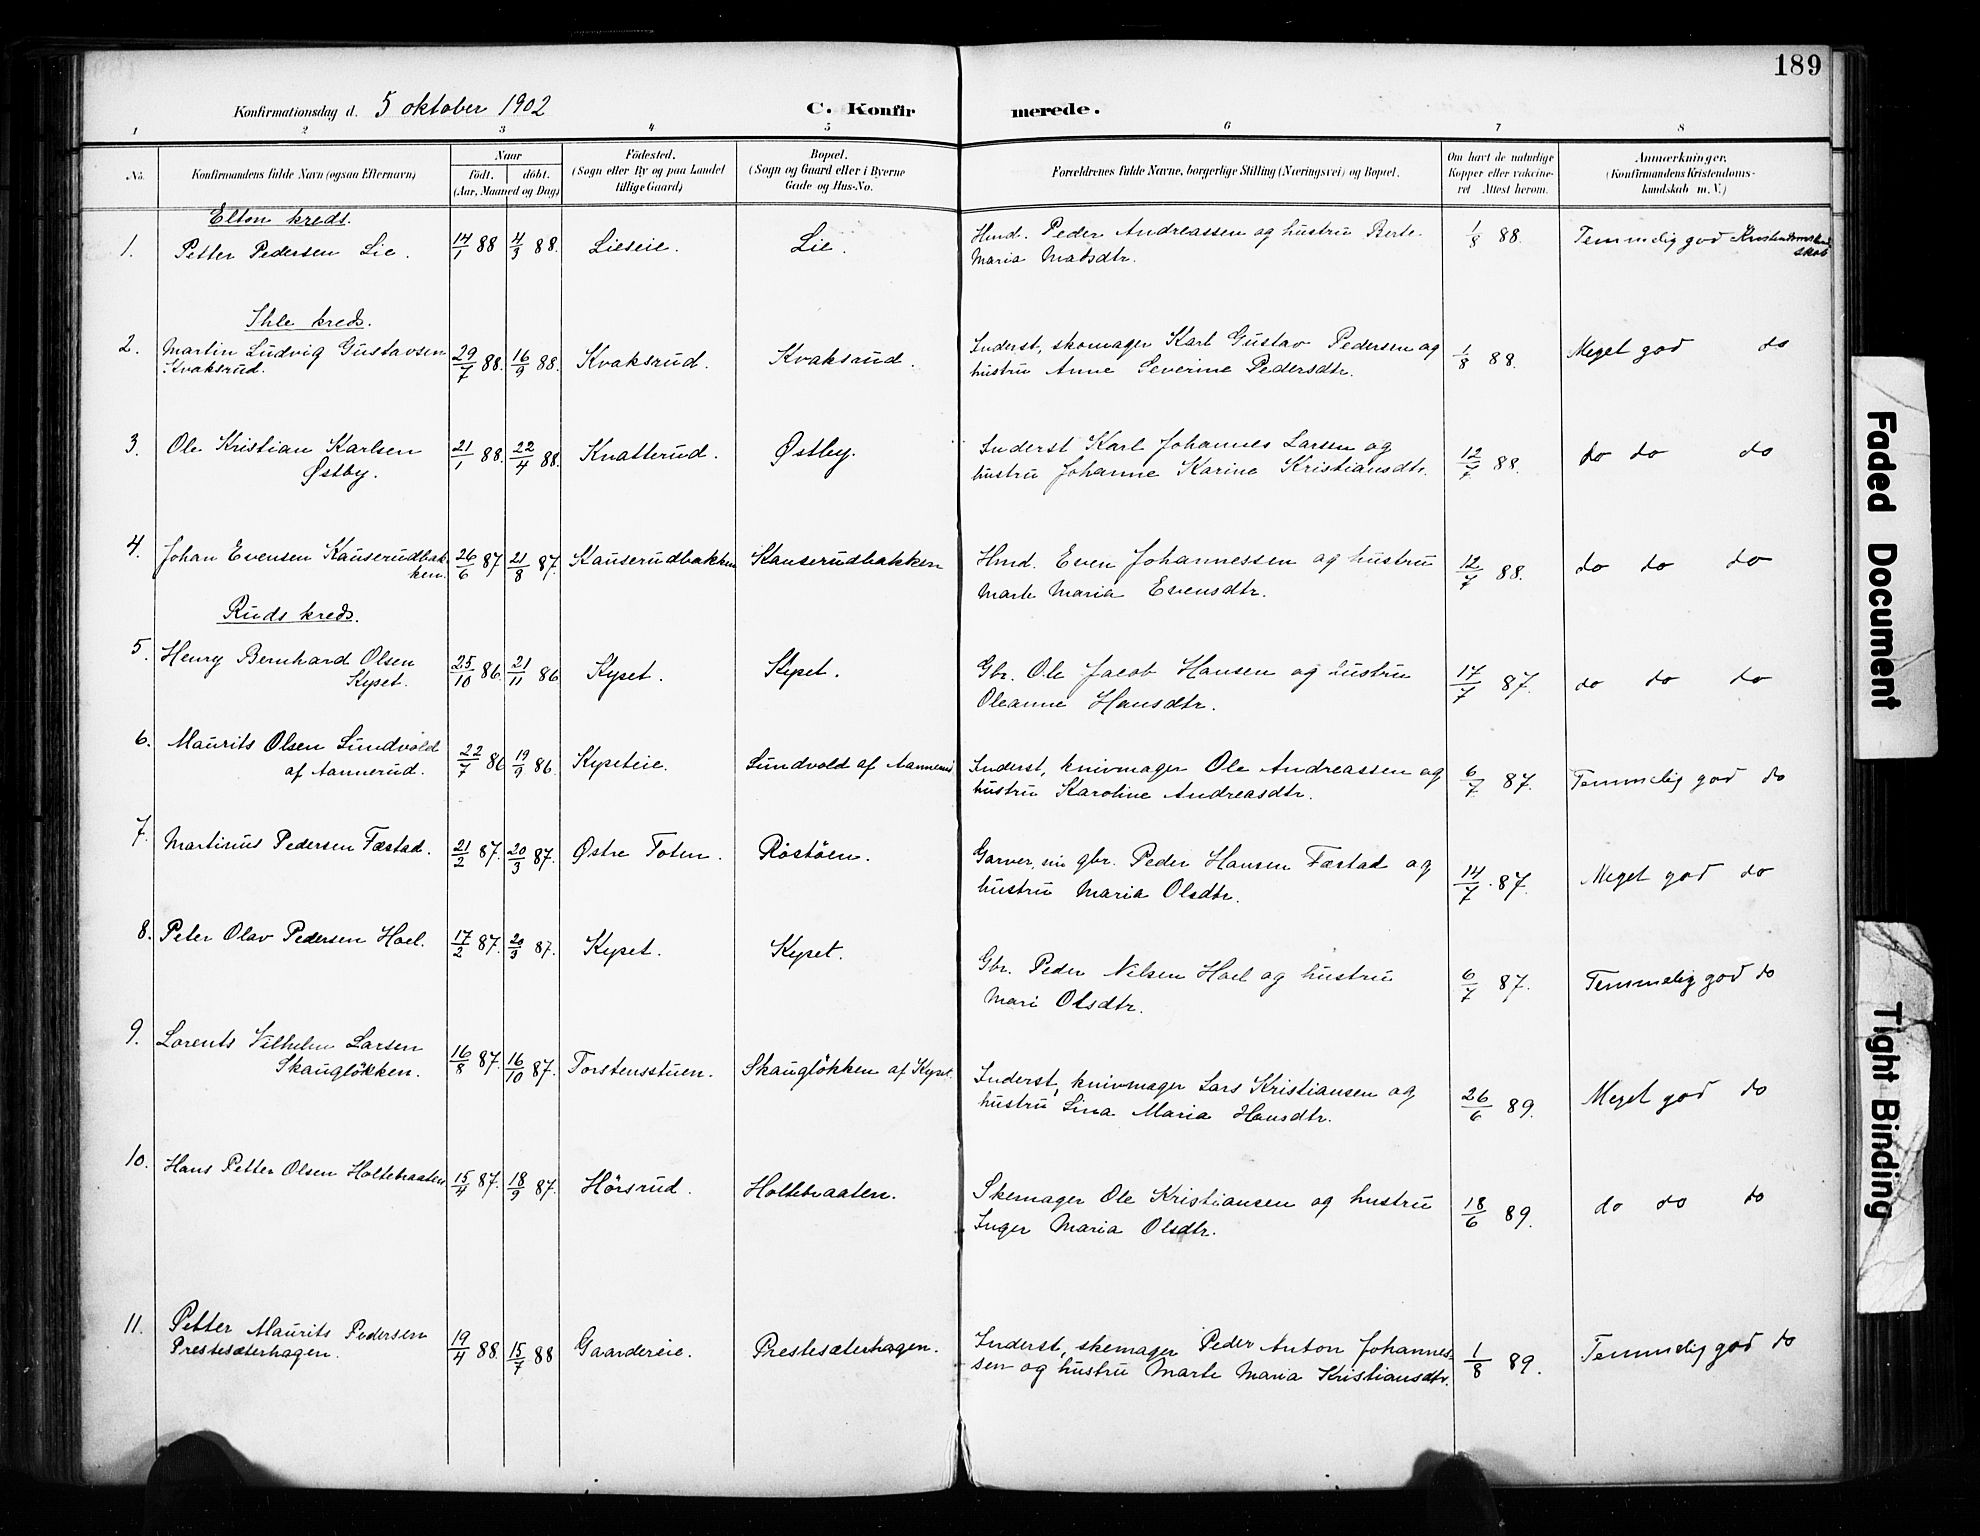 189
Konfirmationsdag d. 5 oktober 1902
C. Konfirmerede.
1 2 3 4 5 6 7 8
No.
Konfirmandens fulde Navn (ogsaa Efternavn)
Naar
födt. döbt.
(Aar, Maaned og Dag)
Födested.
(Sogn eller By og paa Landet
tillige Gaard)
Bopæl.
(Sogn og Gaard eller i Byerne
Gade og Hus-No.
Forældrenes fulde Navne, borgerlige Stilling (Næringsvei) og Bopæl.
Om havt de naturlige
Kopper eller vakcine-
ret Attest herom.
Anmærkninger.
(Konfirmandens Kristendoms-
kundskab m. V.)
Elton kreds.
1. Petter Pedersen Lie. 14/1 88 4/3 88. Lieseie. Lie. Hmd. Peder Andreassen og hustru Berte
Maria Madsdtr. 1/8 88. Temmelig god Kristendomskund
skab
Ihle kreds.
2. Martin Ludvig Gustavsen
Kvaksrud. 29/7 88. 16/9 88. Kvaksrud. Kvaksrud. Inderst, skomager Karl Gustav Pedersen og
hustru Anne Severine Pedersdtr. 1/8 88. Meget god do
3. Ole Kristian Karlsen
Østby. 21/1 88. 22/4 88. Knatterud. Østby. Inderst Karl Johannes Larsen og
hustru Johanne Karine Kristiansdtr. 12/7 88. do do do
4. Johan Evensen Kauserudbak-
ken. 26/6 87 21/8 87. Kauserudbakken Kauserudbakken Hmd. Even Johannessen og hustru
Marte Maria Evensdtr. 12/7 88. do do do
Ruds kreds.
5. Henry Bernhard Olsen
Kyset. 25/10 86. 21/11 86 Kyset. Kyset. Gbr. Ole Jacob Hansen og hustru
Oleanne Hansdtr. 17/7 87. do do do
6. Maurits Olsen Sundvold
af Aannerud. 22/7 86 19/9 86. Kyseteie. Sundvold af Aannerud Inderst, knivmager Ole Andreassen og
hustru Karoline Andreasdtr. 6/7 87. Temmelig god do
7. Martinus Pedersen Færstad. 21/2 87. 20/3 87. Østre Toten. Röstöen. Garver, gbr. Peder Hansen Færstad og
hustru Maria Olsdtr. 14/7 87. Meget god do
8. Peter Olav Pedersen Hoel. 17/2 87. 20/3 87. Kyset. Kyset. Gbr. Peder Nilsen Hoel og hustru
Mari Olsdtr. 6/7 87. Temmelig god do
9. Lorents Vilhelm Larsen
Skauglökken. 16/8 87. 16/10 87. Torstensstuen. Skauglökken af Kyset. Inderst, knivmager Lars Kristiansen og
hustru Lina Maria Hansdtr. 26/6 89. Meget god do
10. Hans Petter Olsen Holtebraaten 15/4 87. 18/9 87. Hörsrud. Holtebraaten. Skemager Ole Kristiansen og hustru
Inger Maria Olsdtr. 18/6 89. do do do
11. Petter Maurits Pedersen
Prestesæterhagen. 19/4 88. 15/7 88 Gaardereie. Prestesæterhagen. Inderst, skemager Peder Anton Johannes-
sen og hustru Marte Maria Kristiansdtr. 1/8 89. Temmelig god do
Faded Document
Tight Binding